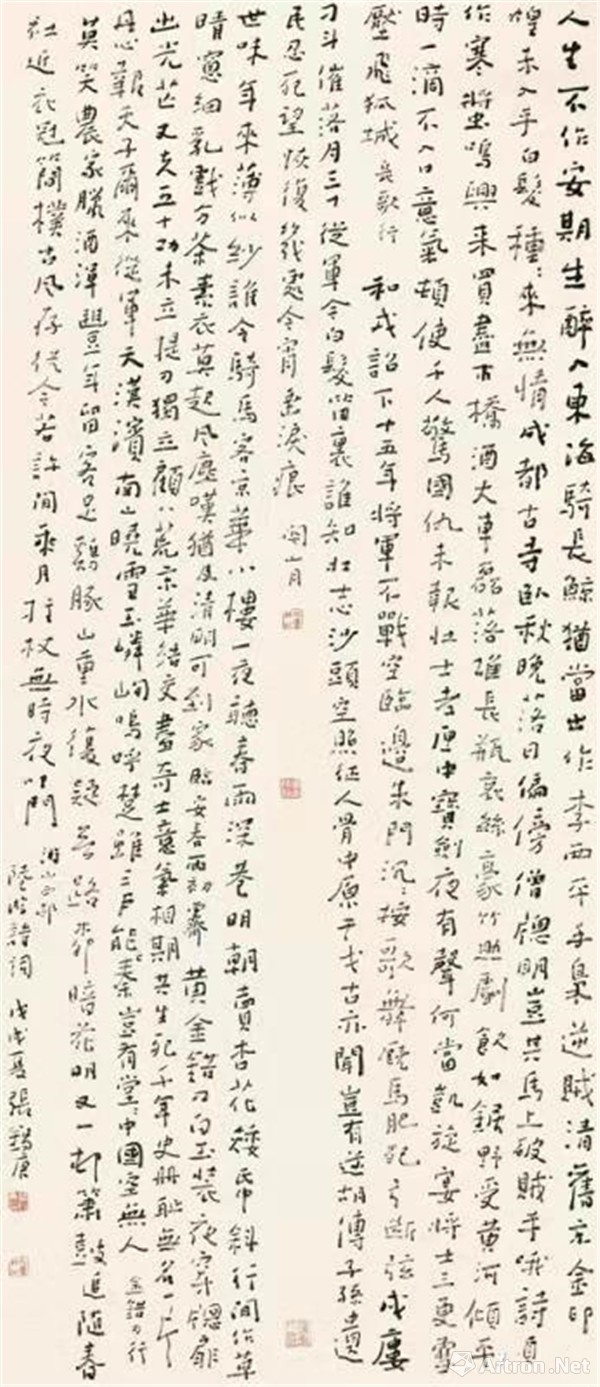 人生不作安期生醉入東海騎長鯨猶當出作李西平手梟逆賊清舊京金印
煌未入手白髮種〻來無情成都古寺臥秋晚落日偏傍僧牕明豈其馬上破賊手哦詩長
作寒螿鳴興來買盡市橋酒大車磊落堆長瓶哀絲豪竹助劇飲如鋸野受黃河傾平
時一滴不入口意氣頓使千人驚國仇未報壯士老匣中寶劍夜有聲何當凱旋宴將士三更雪
壓飛狐城 長歌行 和戎詔下十五年將軍不戰空臨邊朱門沉〻按歌舞廄馬肥死弓斷弦戍廔
刁斗催落月三十從軍今白髮笛裏誰知壯士心沙頭空照征人骨中原干戈古亦聞豈有逆胡傳子孫遺
民忍死望恢復幾處今宵垂淚痕 關山月
世味年來薄似紗誰令騎馬客京華小樓一夜聽春雨深巷明朝賣杏花矮紙斜行閒作草
晴窻細乳戲分茶素衣莫起風塵嘆猶及清明可到家 臨安春雨初霽 黃金錯刀白玉裝夜穿牕扉
出光芒丈夫五十功未立提刀獨立顧八荒京華結交盡奇士意氣相期共生死千年史冊恥無名一片
丹心報天子爾來從軍天漢濱南山曉雪玉嶙峋嗚呼楚雖三戶能亡秦豈有堂〻中國空無人 金錯刀行
莫笑農家臘酒渾豐年留客足雞豚山重水復疑無路柳暗花明又一邨簫鼓追隨春
社近衣冠簡樸古風存從今若許閒乘月拄杖無時夜叩門 游山西邨
陸游詩詞 戊戌夏張錫庚
Artron.Net